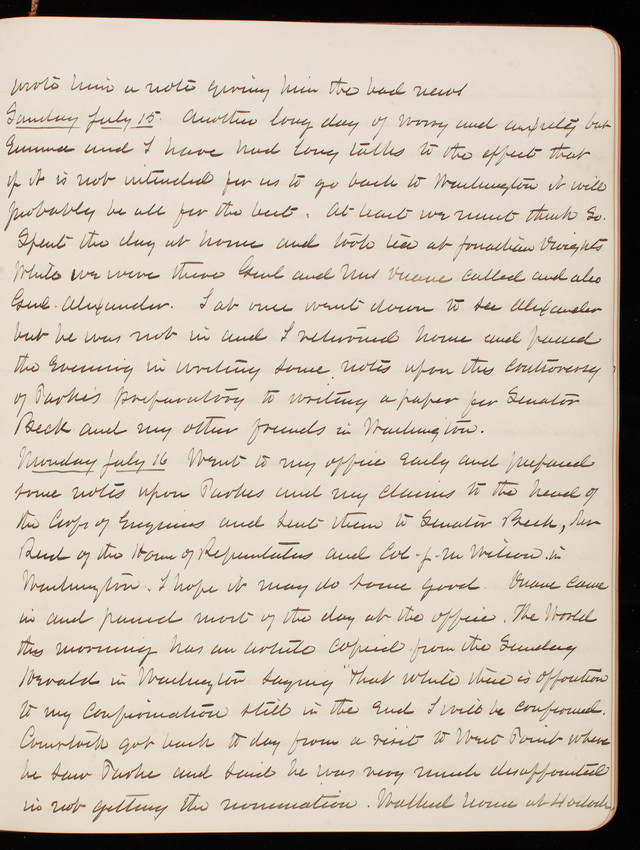 wrote him a note giving him the bad news
Sunday July 15. Another long day of worry and anxiety but
Emma and I have had long talks to the effect that
if it is not intended for us to go back to Washington it will
probably be all for the best. At least we must think so.
Spent the day at home and took tea at Jonathan Wrights
While we were there Genl and Mrs Duane called and also
Genl. Alexander. I at once went down to see Alexander
but he was not in and I returned home and passed
the Evening in writing some notes upon this controversy
of Parke's preparatory to writing a paper for Senator
Beck and my other friends in Washington.
Monday July 16 Went to my office Early and prepared
some notes upon Parkes and my claims to the head of
the Corps of Engineers and sent them to Senator Beck,
Reid of the House of Repentatas and Col-J-M Wilson in
Washington. I hope it may do some good. Duane came
in and passed most of the day at the office. The World
this morning has an article copied from the Sunday
Herald in Washington saying "that while there is opposition
to my Confirmation still in the End I will be confirmed.
Comstock got back to day from a visit to West Point where
he saw Parke and said he was very much disappointed
in not getting the nomination. Walked home at 4 oclock